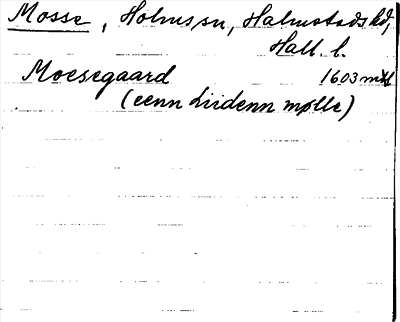 Mosse, Holms sn, Halmstads hd,
Hall. l.
Moesegaard 1603 mtl
(eenn liidenn mølle)